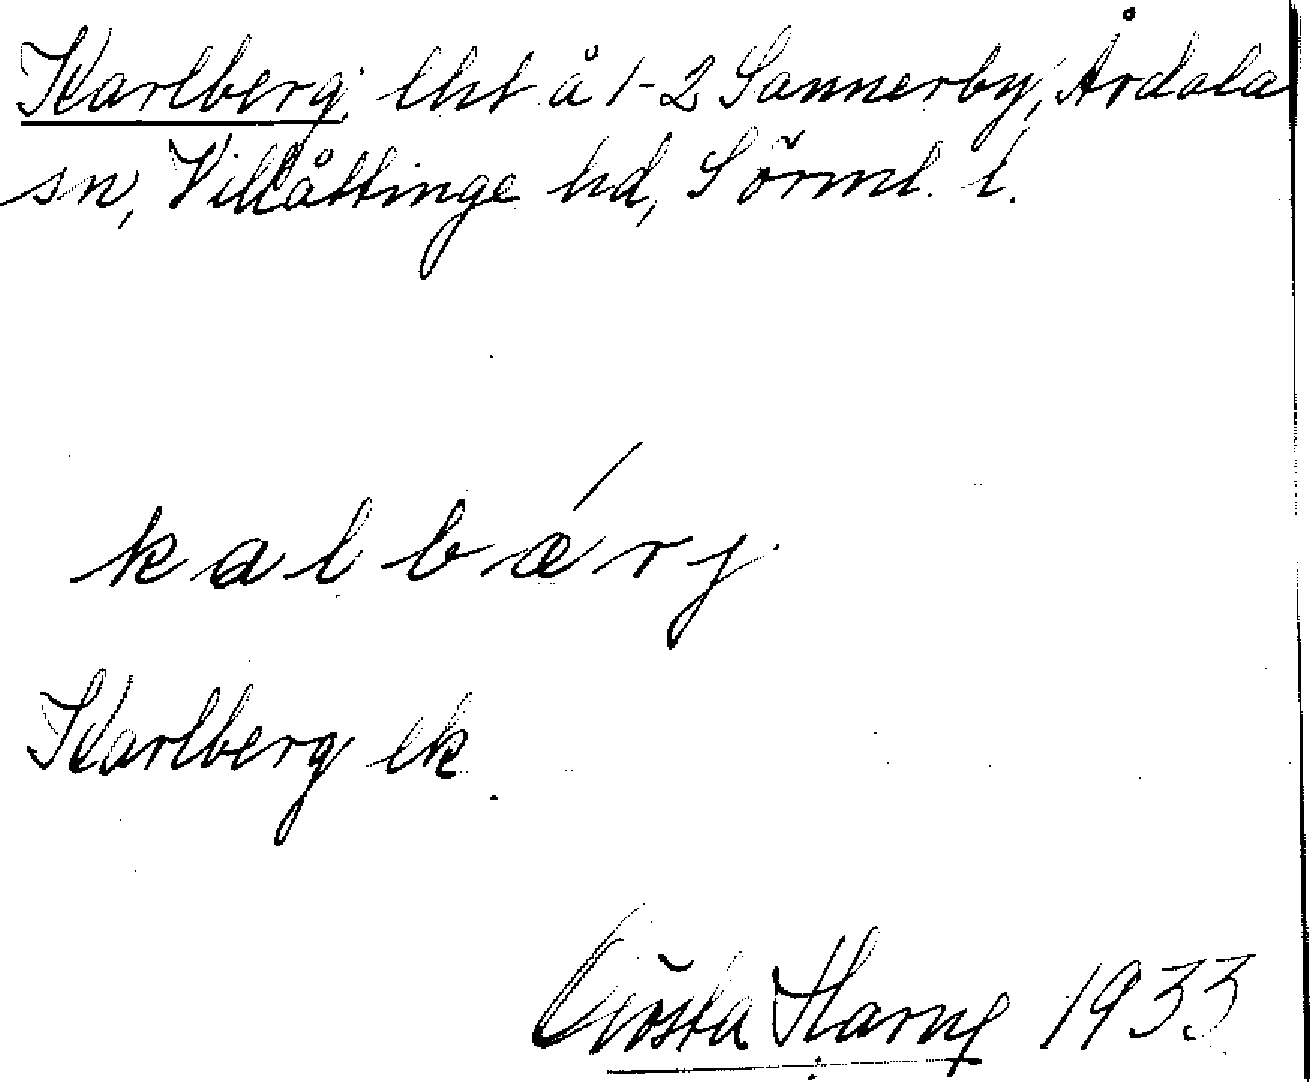 Karlberg, lht å 1-2 Sannerby, Årdala
sn, Villåttinge hd, Sörml. l.
kalbærj
Karlberg ek.
Gösta 1933